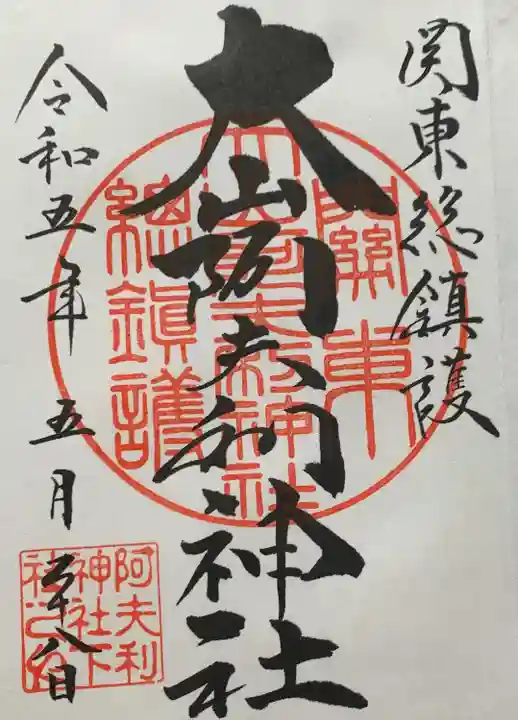 関東総鎮護
大山阿夫利神社
令和五年 五月 二十八日
關東
大山阿夫利神社
總鎮護
阿夫利
神社下
社之印